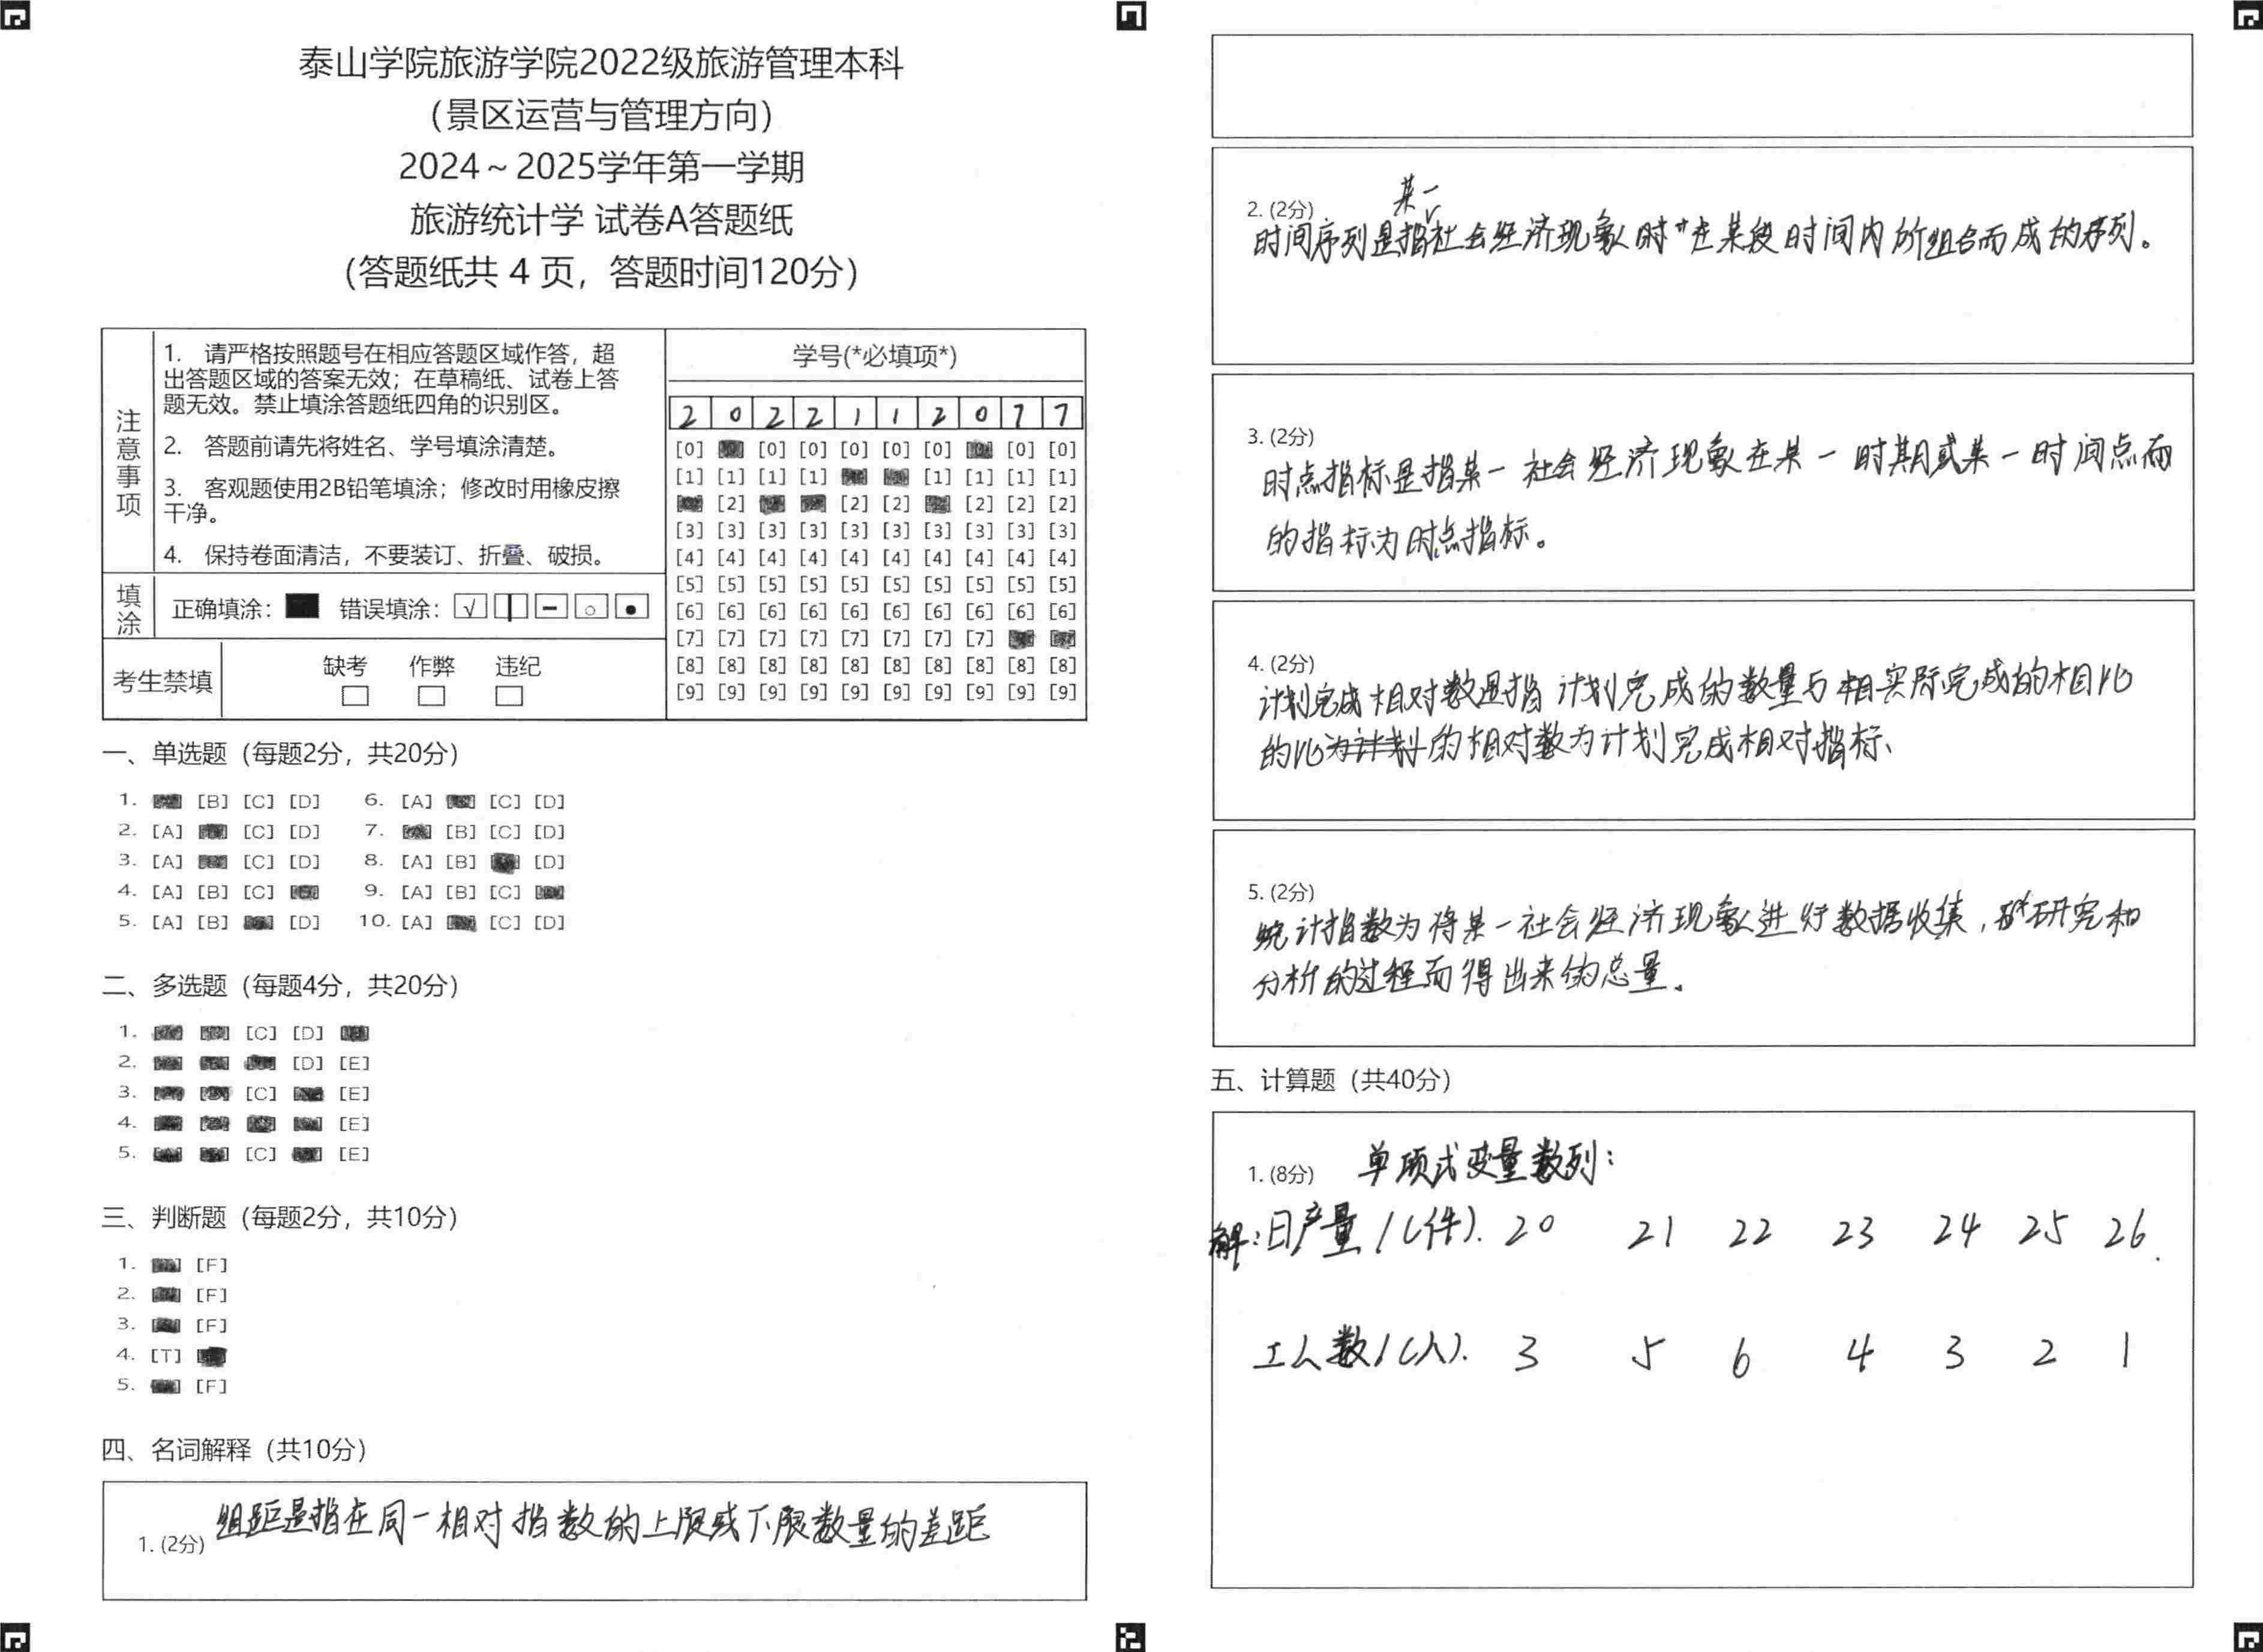 泰山学院旅游学院2022级旅游管理本科
（景区运营与管理方向）
2024～2025学年第一学期
旅游统计学 试卷A答题纸
（答题纸共 4 页，答题时间120分）
注意事项
1. 请严格按照题号在相应答题区域作答，超
出答题区域的答案无效；在草稿纸、试卷上答
题无效。禁止填涂答题纸四角的识别区。
2. 答题前请先将姓名、学号填涂清楚。
3. 客观题使用2B铅笔填涂；修改时用橡皮擦
干净。
4. 保持卷面清洁，不要装订、折叠、破损。
填涂 正确填涂： 错误填涂： √
考生禁填 缺考 作弊 违纪
学号(*必填项*)
2 0 2 2 1 1 2 0 7 7
[0] [0] [0] [0] [0] [0] [0] [0]
[1] [1] [1] [1] [1] [1] [1] [1]
[2] [2] [2] [2] [2] [2]
[3] [3] [3] [3] [3] [3] [3] [3] [3] [3]
[4] [4] [4] [4] [4] [4] [4] [4] [4] [4]
[5] [5] [5] [5] [5] [5] [5] [5] [5] [5]
[6] [6] [6] [6] [6] [6] [6] [6] [6] [6]
[7] [7] [7] [7] [7] [7] [7] [7]
[8] [8] [8] [8] [8] [8] [8] [8] [8] [8]
[9] [9] [9] [9] [9] [9] [9] [9] [9] [9]
一、单选题（每题2分，共20分）
1. [B] [C] [D] 6. [A] [C] [D]
2. [A] [C] [D] 7. [B] [C] [D]
3. [A] [C] [D] 8. [A] [B] [D]
4. [A] [B] [C] 9. [A] [B] [C]
5. [A] [B] [D] 10. [A] [C] [D]
二、多选题（每题4分，共20分）
1. [C] [D]
2. [D] [E]
3. [C] [E]
4. [E]
5. [C] [E]
三、判断题（每题2分，共10分）
1. [F]
2. [F]
3. [F]
4. [T]
5. [F]
四、名词解释（共10分）
1. (2分) 组距是指在同一相对指数的上限或下限数量的差距
2. (2分)
某一
时间序列是指社会经济现象时在某段时间内所组合而成的序列。
3. (2分)
时点指标是指某一社会经济现象在某一时期或某一时间点而
的指标为时点指标。
4. (2分)
计划完成相对数是指计划完成的数量与相实际完成的相比
的比为计划的相对数为计划完成相对指标、
5. (2分)
统计指数为将某一社会经济现象进行数据收集，研究和
分析的过程而得出来的总量。
五、计算题（共40分）
1. (8分) 单项式变量数列：
解：日产量/(件). 20 21 22 23 24 25 26.
工人数/(人). 3 5 6 4 3 2 1